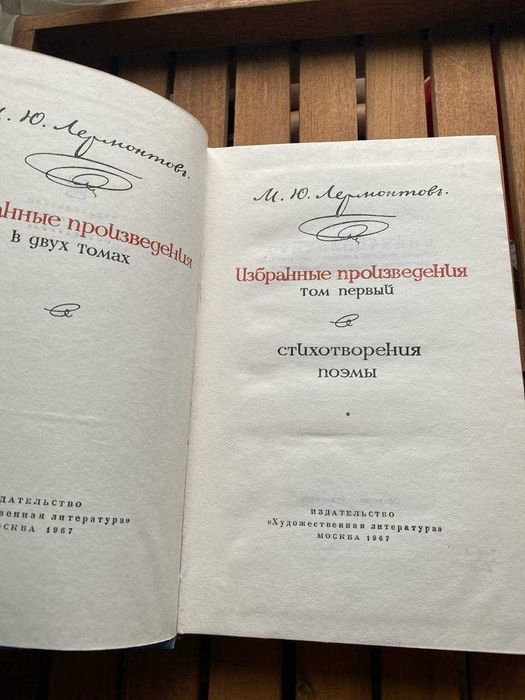 М. Ю. Лермонтовъ.
произведения
в двух томах
литература"
1967
М. Ю. Лермонтовъ.
избранные произведения
том первый
стихотворения
поэмы
ИЗДАТЕЛЬСТВО
«Художественная литература»
МОСКВА 1967